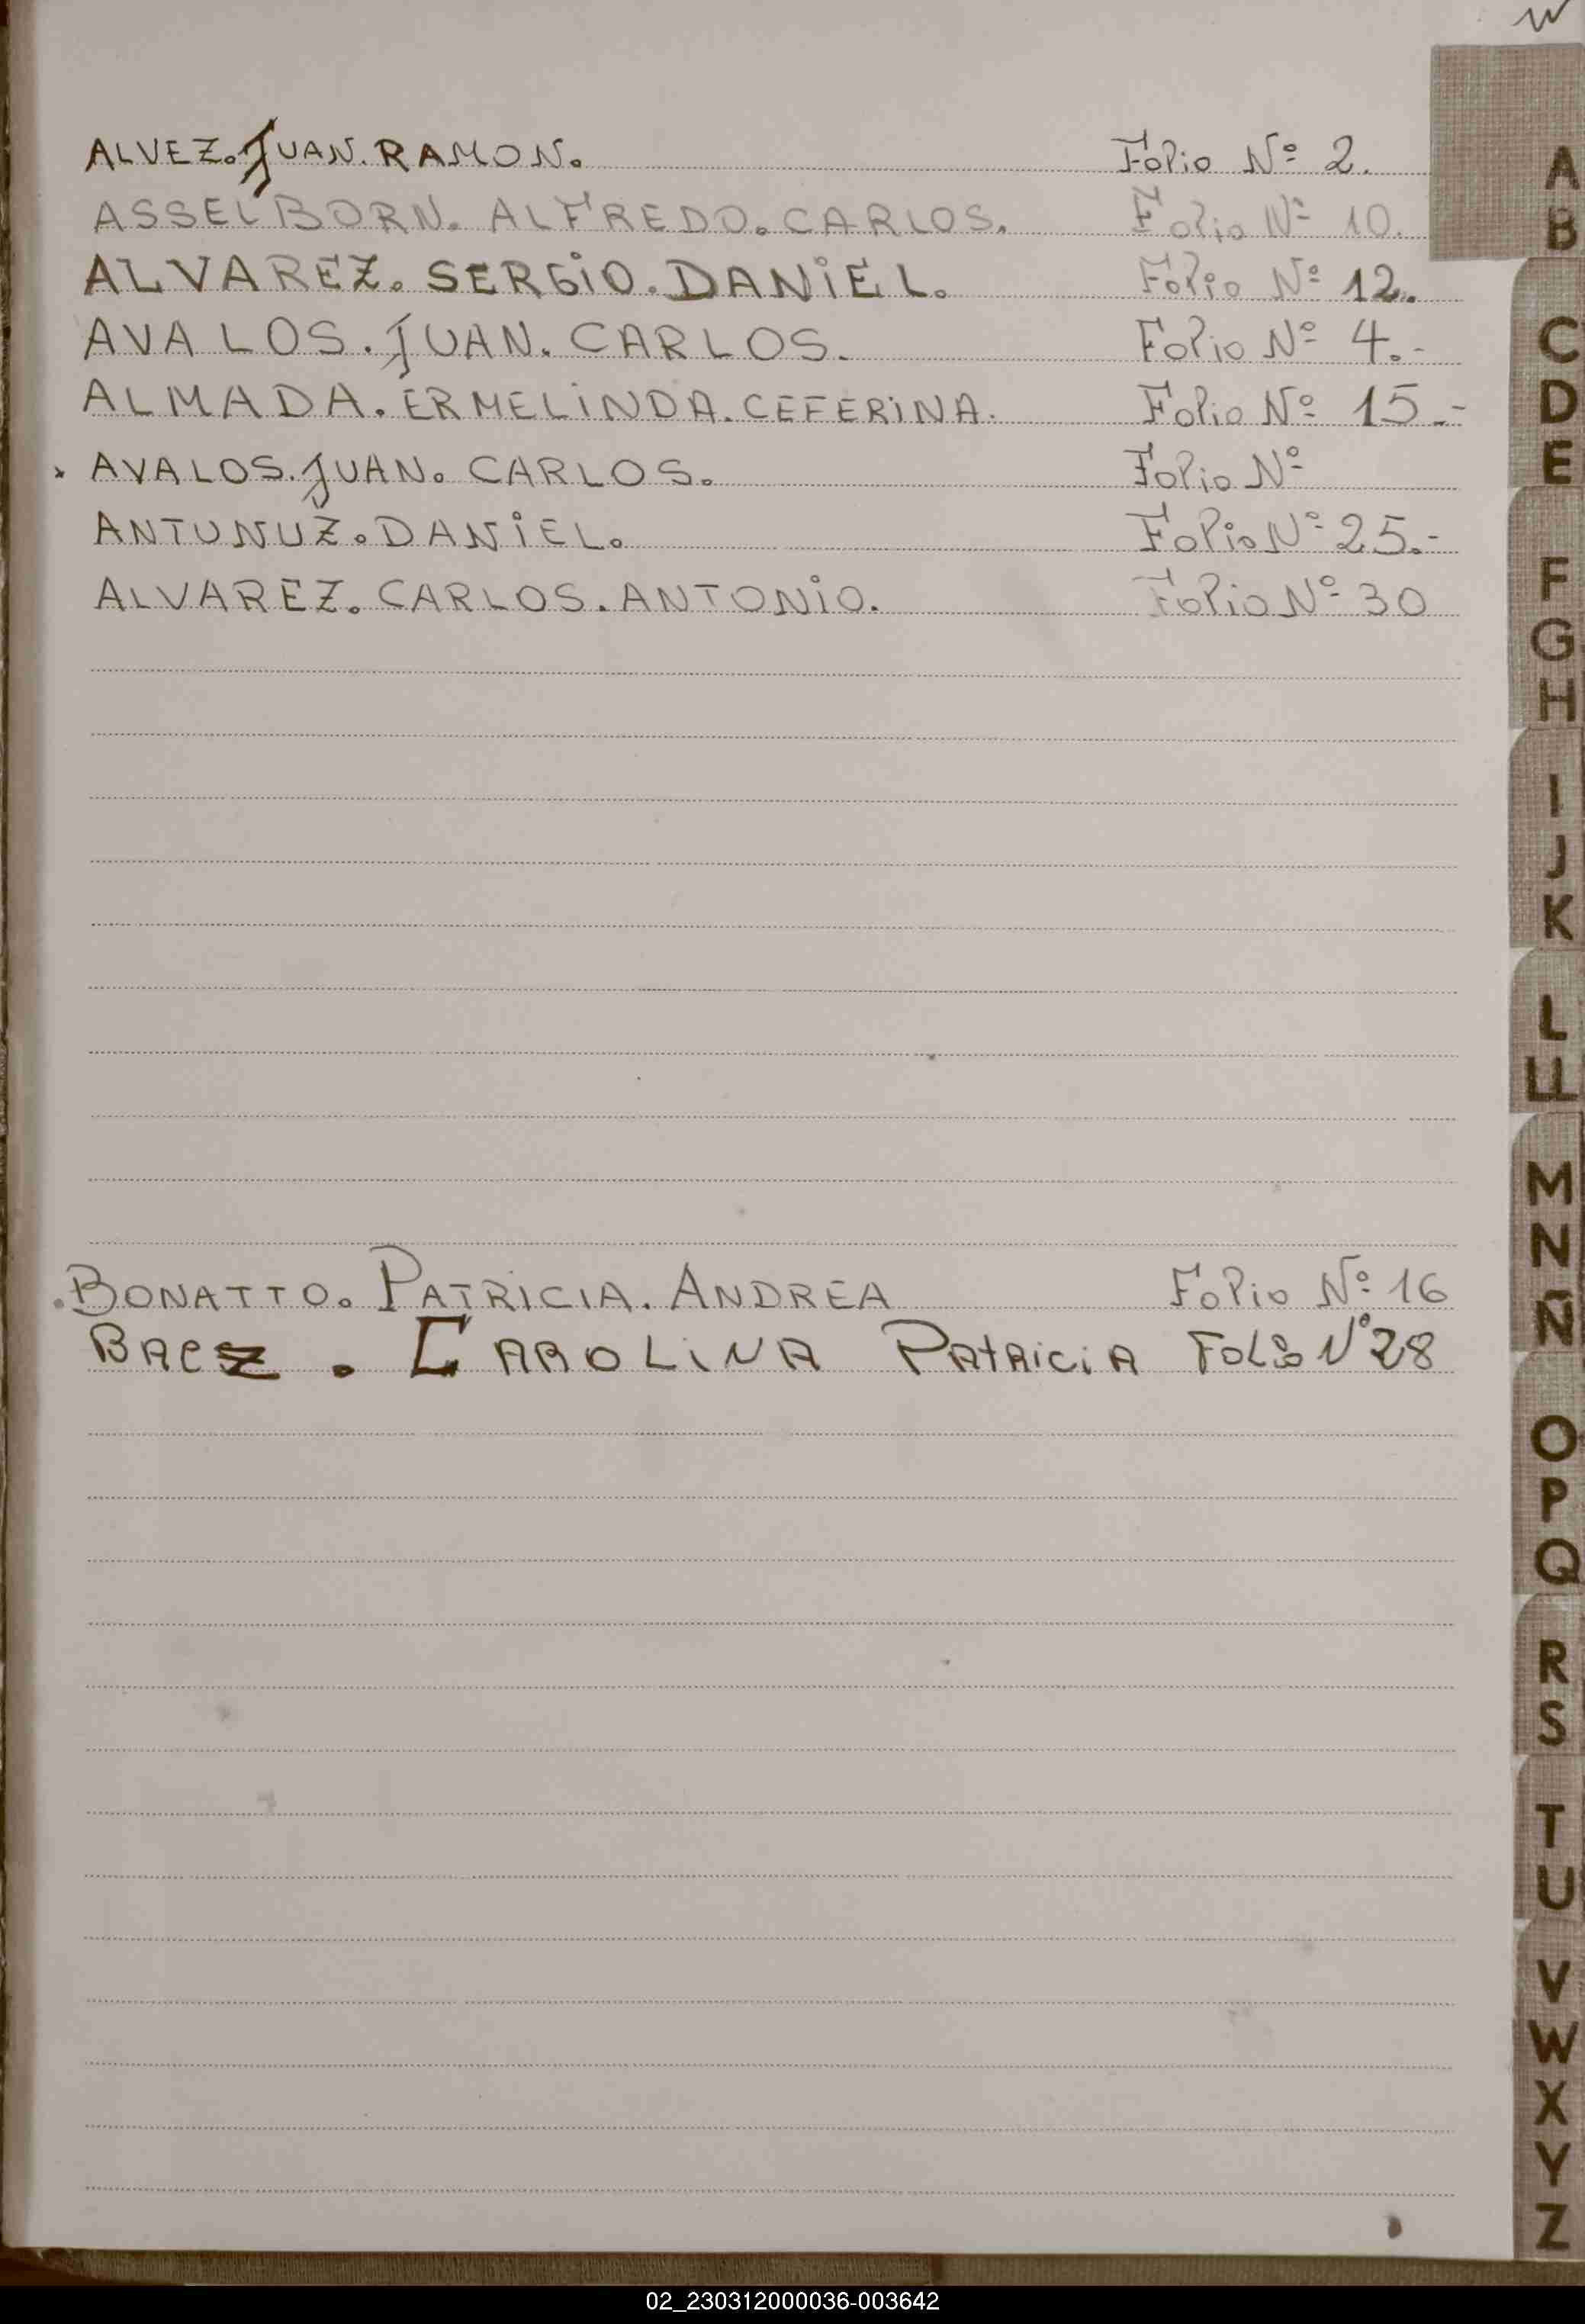 ALVEZ. JUAN. RAMON. Folio Nº 2.
ASSELBORN. ALFREDO. CARLOS. Folio Nº 10.
ALVAREZ. SERGIO. DANIEL. Folio Nº 12.
AVALOS. JUAN. CARLOS. Folio Nº 4.-
ALMADA. ERMELINDA. CEFERINA. Folio Nº 15.-
AVALOS. JUAN. CARLOS. Folio Nº
ANTUNUZ. DANIEL. Folio Nº 25.-
ALVAREZ. CARLOS. ANTONIO. Folio Nº 30
BONATTO. PATRICIA. ANDREA Folio Nº 16
BAEZ. CAROLINA PATRICIA FOLIO Nº 28
A
B
C
D
E
F
G
H
I
J
K
L
LL
M
N
Ñ
O
P
Q
R
S
T
U
V
W
X
Y
Z
02_230312000036-003642